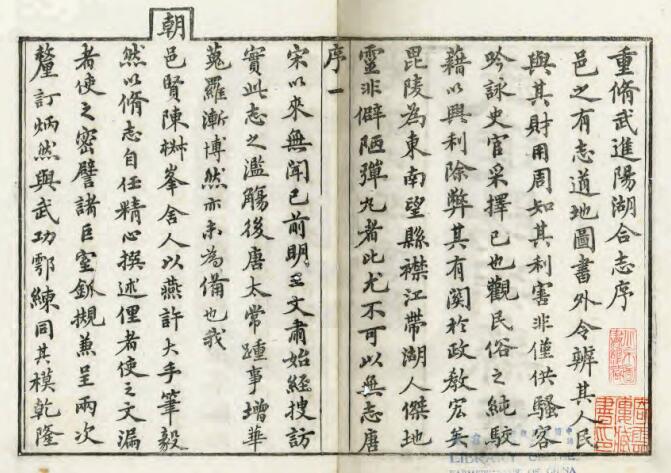 重脩武進陽湖合志序
邑之有志道地圖書外令辨其人民
與其財用周知其利害非僅供騷客
吟詠史官采擇已也觀民俗之純駮
藉以興利除弊其有関於政教宏矣
毘陵為東南望縣襟江帶湖人傑地
靈非僻陋彈丸者比尤不可以無志唐
序一
宋以來無聞已前明王文肅始經搜訪
實此志之濫觴後唐太常踵事增華
蒐羅漸博然亦未為備也我
朝
邑賢陳椒峯舍人以燕許大手筆毅
然以脩志自任精心撰述俚者使之文漏
者使之密譬諸巨室釽摫兼呈兩次
釐訂炳然與武功鄠練同其模乾隆
LIBRARY